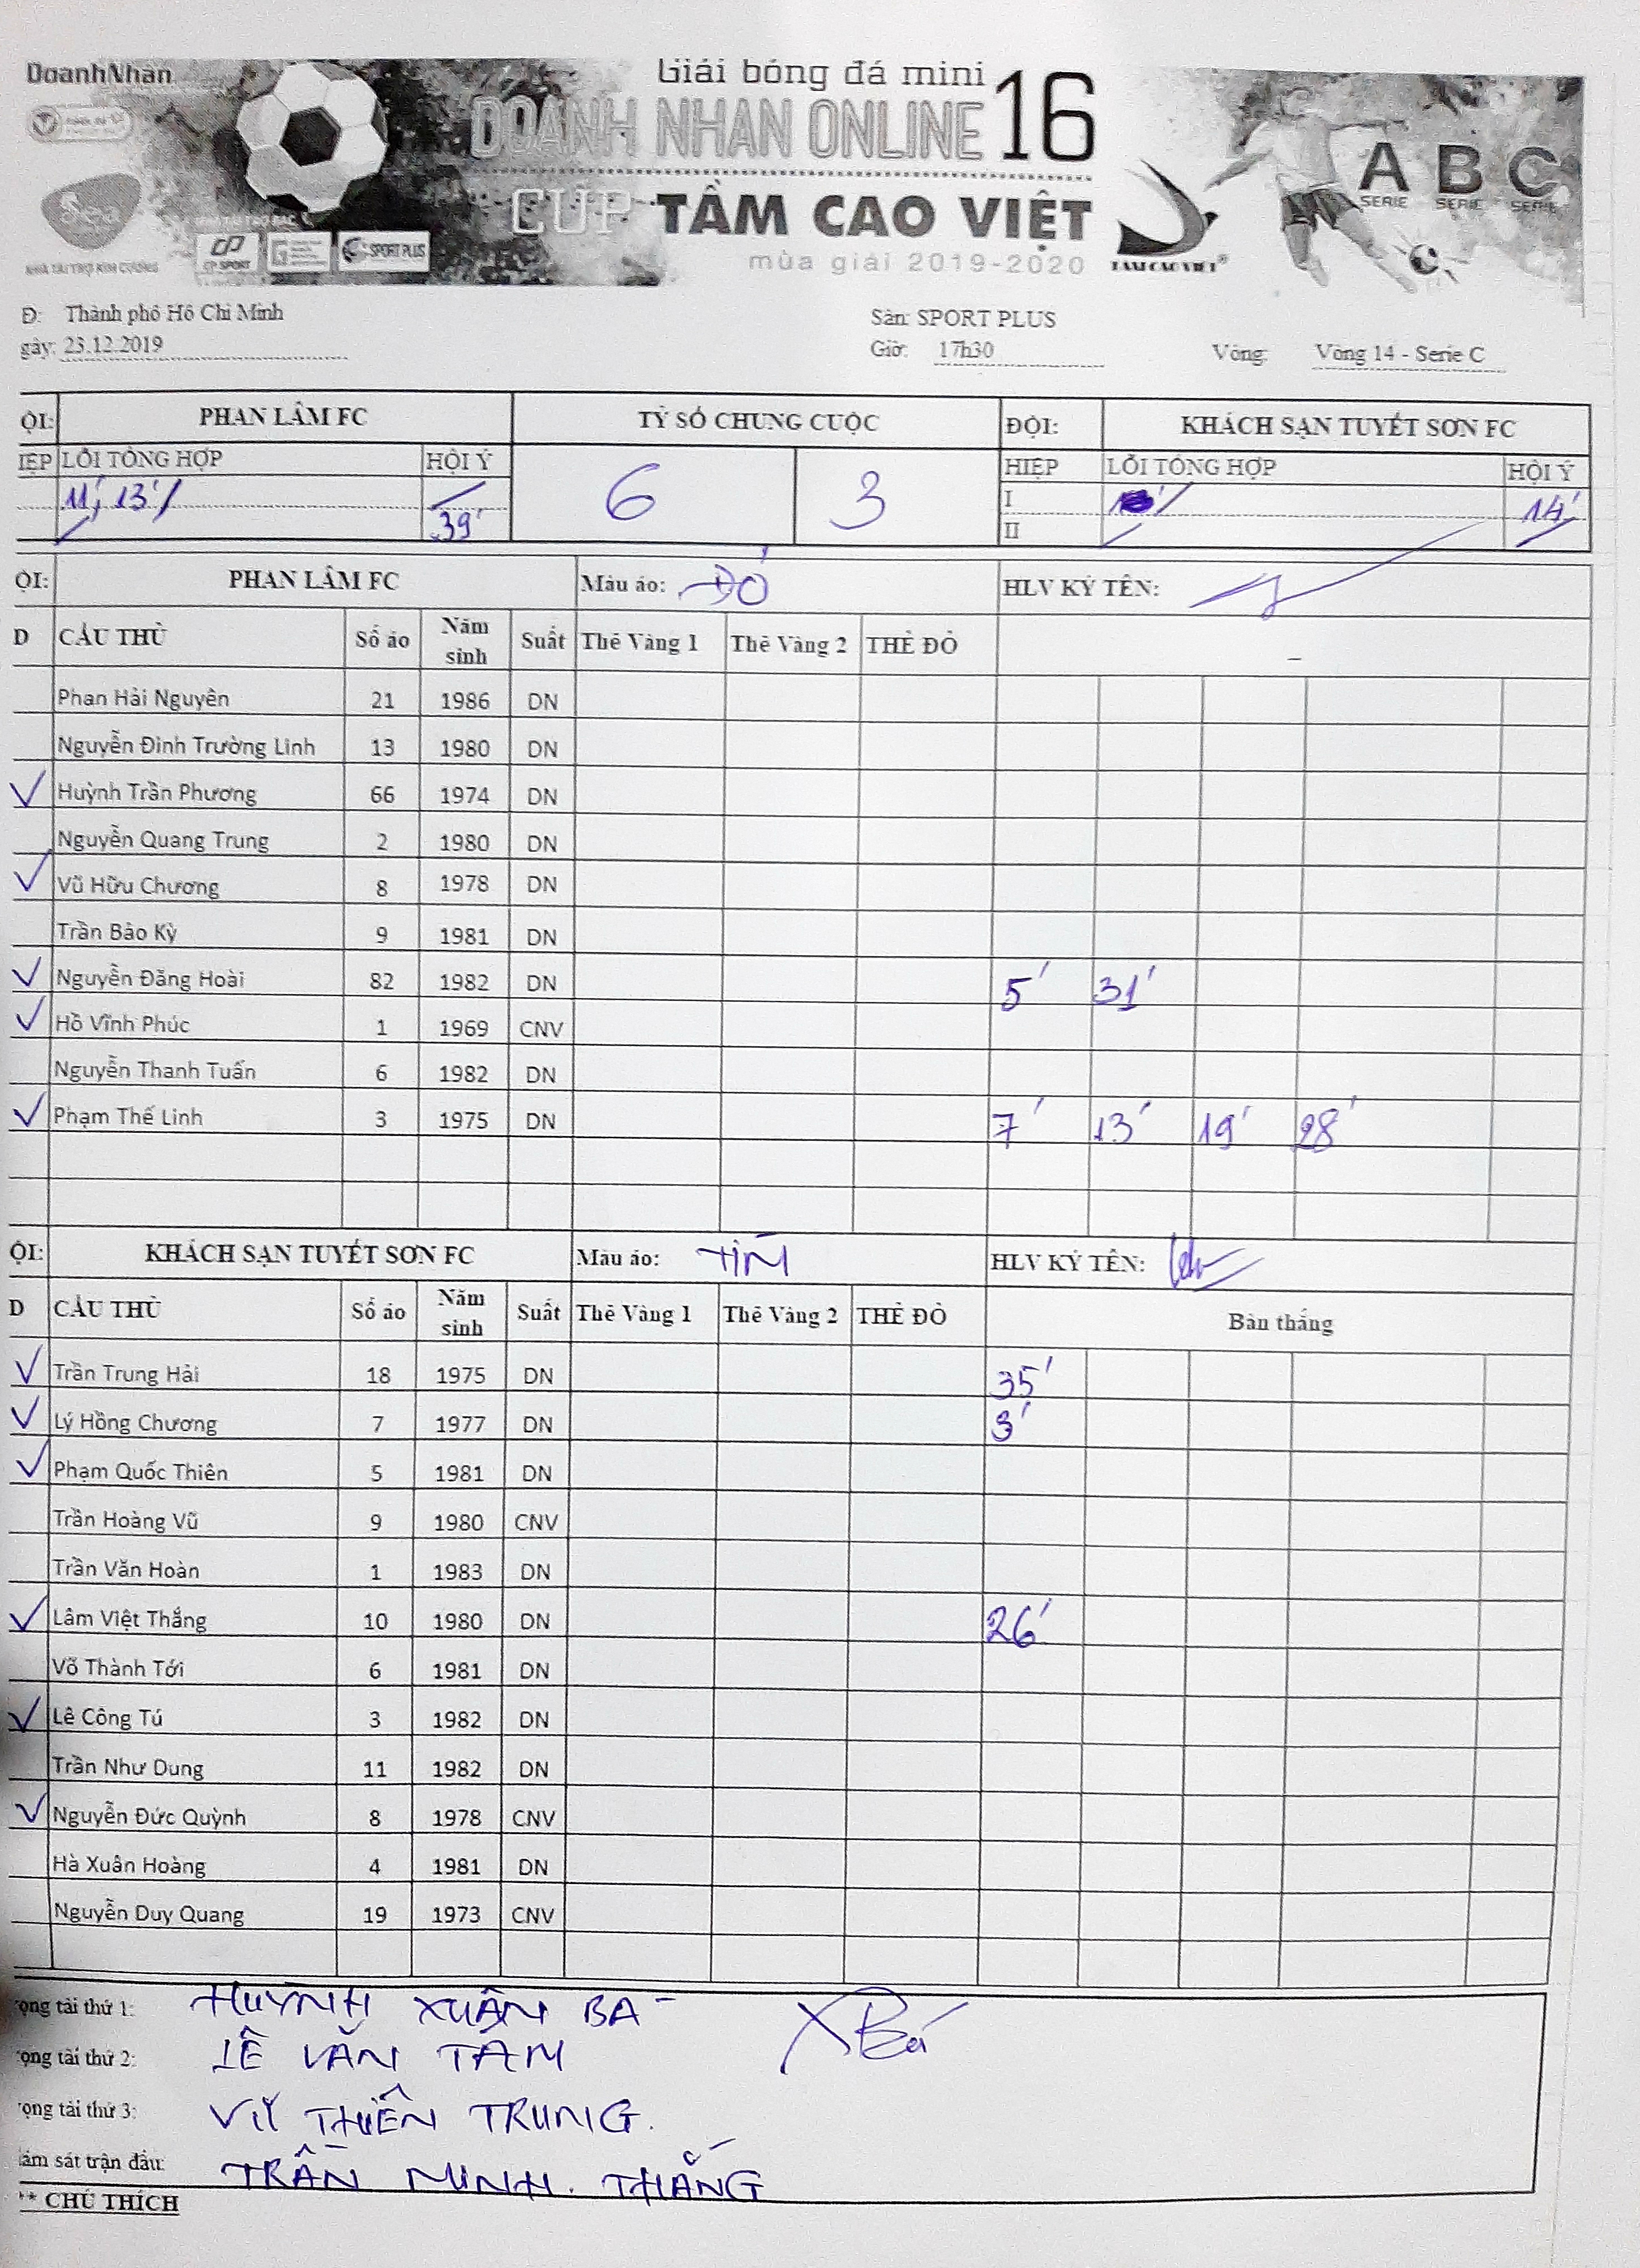 DoanhNhân
Giải bóng đá mini
DOANH NHÂN ONLINE 16
CUP TẦM CAO VIỆT
mùa giải 2019-2020
TAM CAO VIET®
A B C
SERIE SERIE SERIE
Sea
NHÀ TÀI TRỢ KIM CƯƠNG
CP SPORT
SPORT PLUS
Đ: Thành phố Hồ Chí Minh
Sân: SPORT PLUS
gày: 23.12.2019
Giờ: 17h30
Vòng: Vòng 14 - Serie C
ỘI: PHAN LÂM FC TỶ SỐ CHUNG CUỘC ĐỘI: KHÁCH SẠN TUYẾT SƠN FC
IỆP LỖI TỔNG HỢP HỘI Ý 6 3 HIỆP LỖI TỔNG HỢP HỘI Ý
11', 13' I 14'
39' II
ỘI: PHAN LÂM FC Màu áo: ĐỎ HLV KÝ TÊN:
D CẦU THỦ Số áo Năm sinh Suất Thẻ Vàng 1 Thẻ Vàng 2 THẺ ĐỎ
Phan Hải Nguyên 21 1986 DN
Nguyễn Đình Trường Linh 13 1980 DN
✓ Huỳnh Trần Phương 66 1974 DN
Nguyễn Quang Trung 2 1980 DN
✓ Vũ Hữu Chương 8 1978 DN
Trần Bảo Kỳ 9 1981 DN
✓ Nguyễn Đăng Hoài 82 1982 DN 5' 31'
✓ Hồ Vĩnh Phúc 1 1969 CNV
Nguyễn Thanh Tuấn 6 1982 DN
✓ Phạm Thế Linh 3 1975 DN 7' 13' 19' 28'
ỘI: KHÁCH SẠN TUYẾT SƠN FC Màu áo: TÍM HLV KÝ TÊN:
D CẦU THỦ Số áo Năm sinh Suất Thẻ Vàng 1 Thẻ Vàng 2 THẺ ĐỎ Bàn thắng
✓ Trần Trung Hải 18 1975 DN 35'
✓ Lý Hồng Chương 7 1977 DN 3'
✓ Phạm Quốc Thiên 5 1981 DN
Trần Hoàng Vũ 9 1980 CNV
Trần Văn Hoàn 1 1983 DN
✓ Lâm Việt Thắng 10 1980 DN 26'
Võ Thành Tới 6 1981 DN
✓ Lê Công Tú 3 1982 DN
Trần Như Dung 11 1982 DN
✓ Nguyễn Đức Quỳnh 8 1978 CNV
Hà Xuân Hoàng 4 1981 DN
Nguyễn Duy Quang 19 1973 CNV
rọng tài thứ 1: HUỲNH XUÂN BÁ XBá
rọng tài thứ 2: LÊ VĂN TÂM
rọng tài thứ 3: VŨ THIÊN TRUNG.
iám sát trận đấu: TRẦN MINH. THẮNG
** CHÚ THÍCH